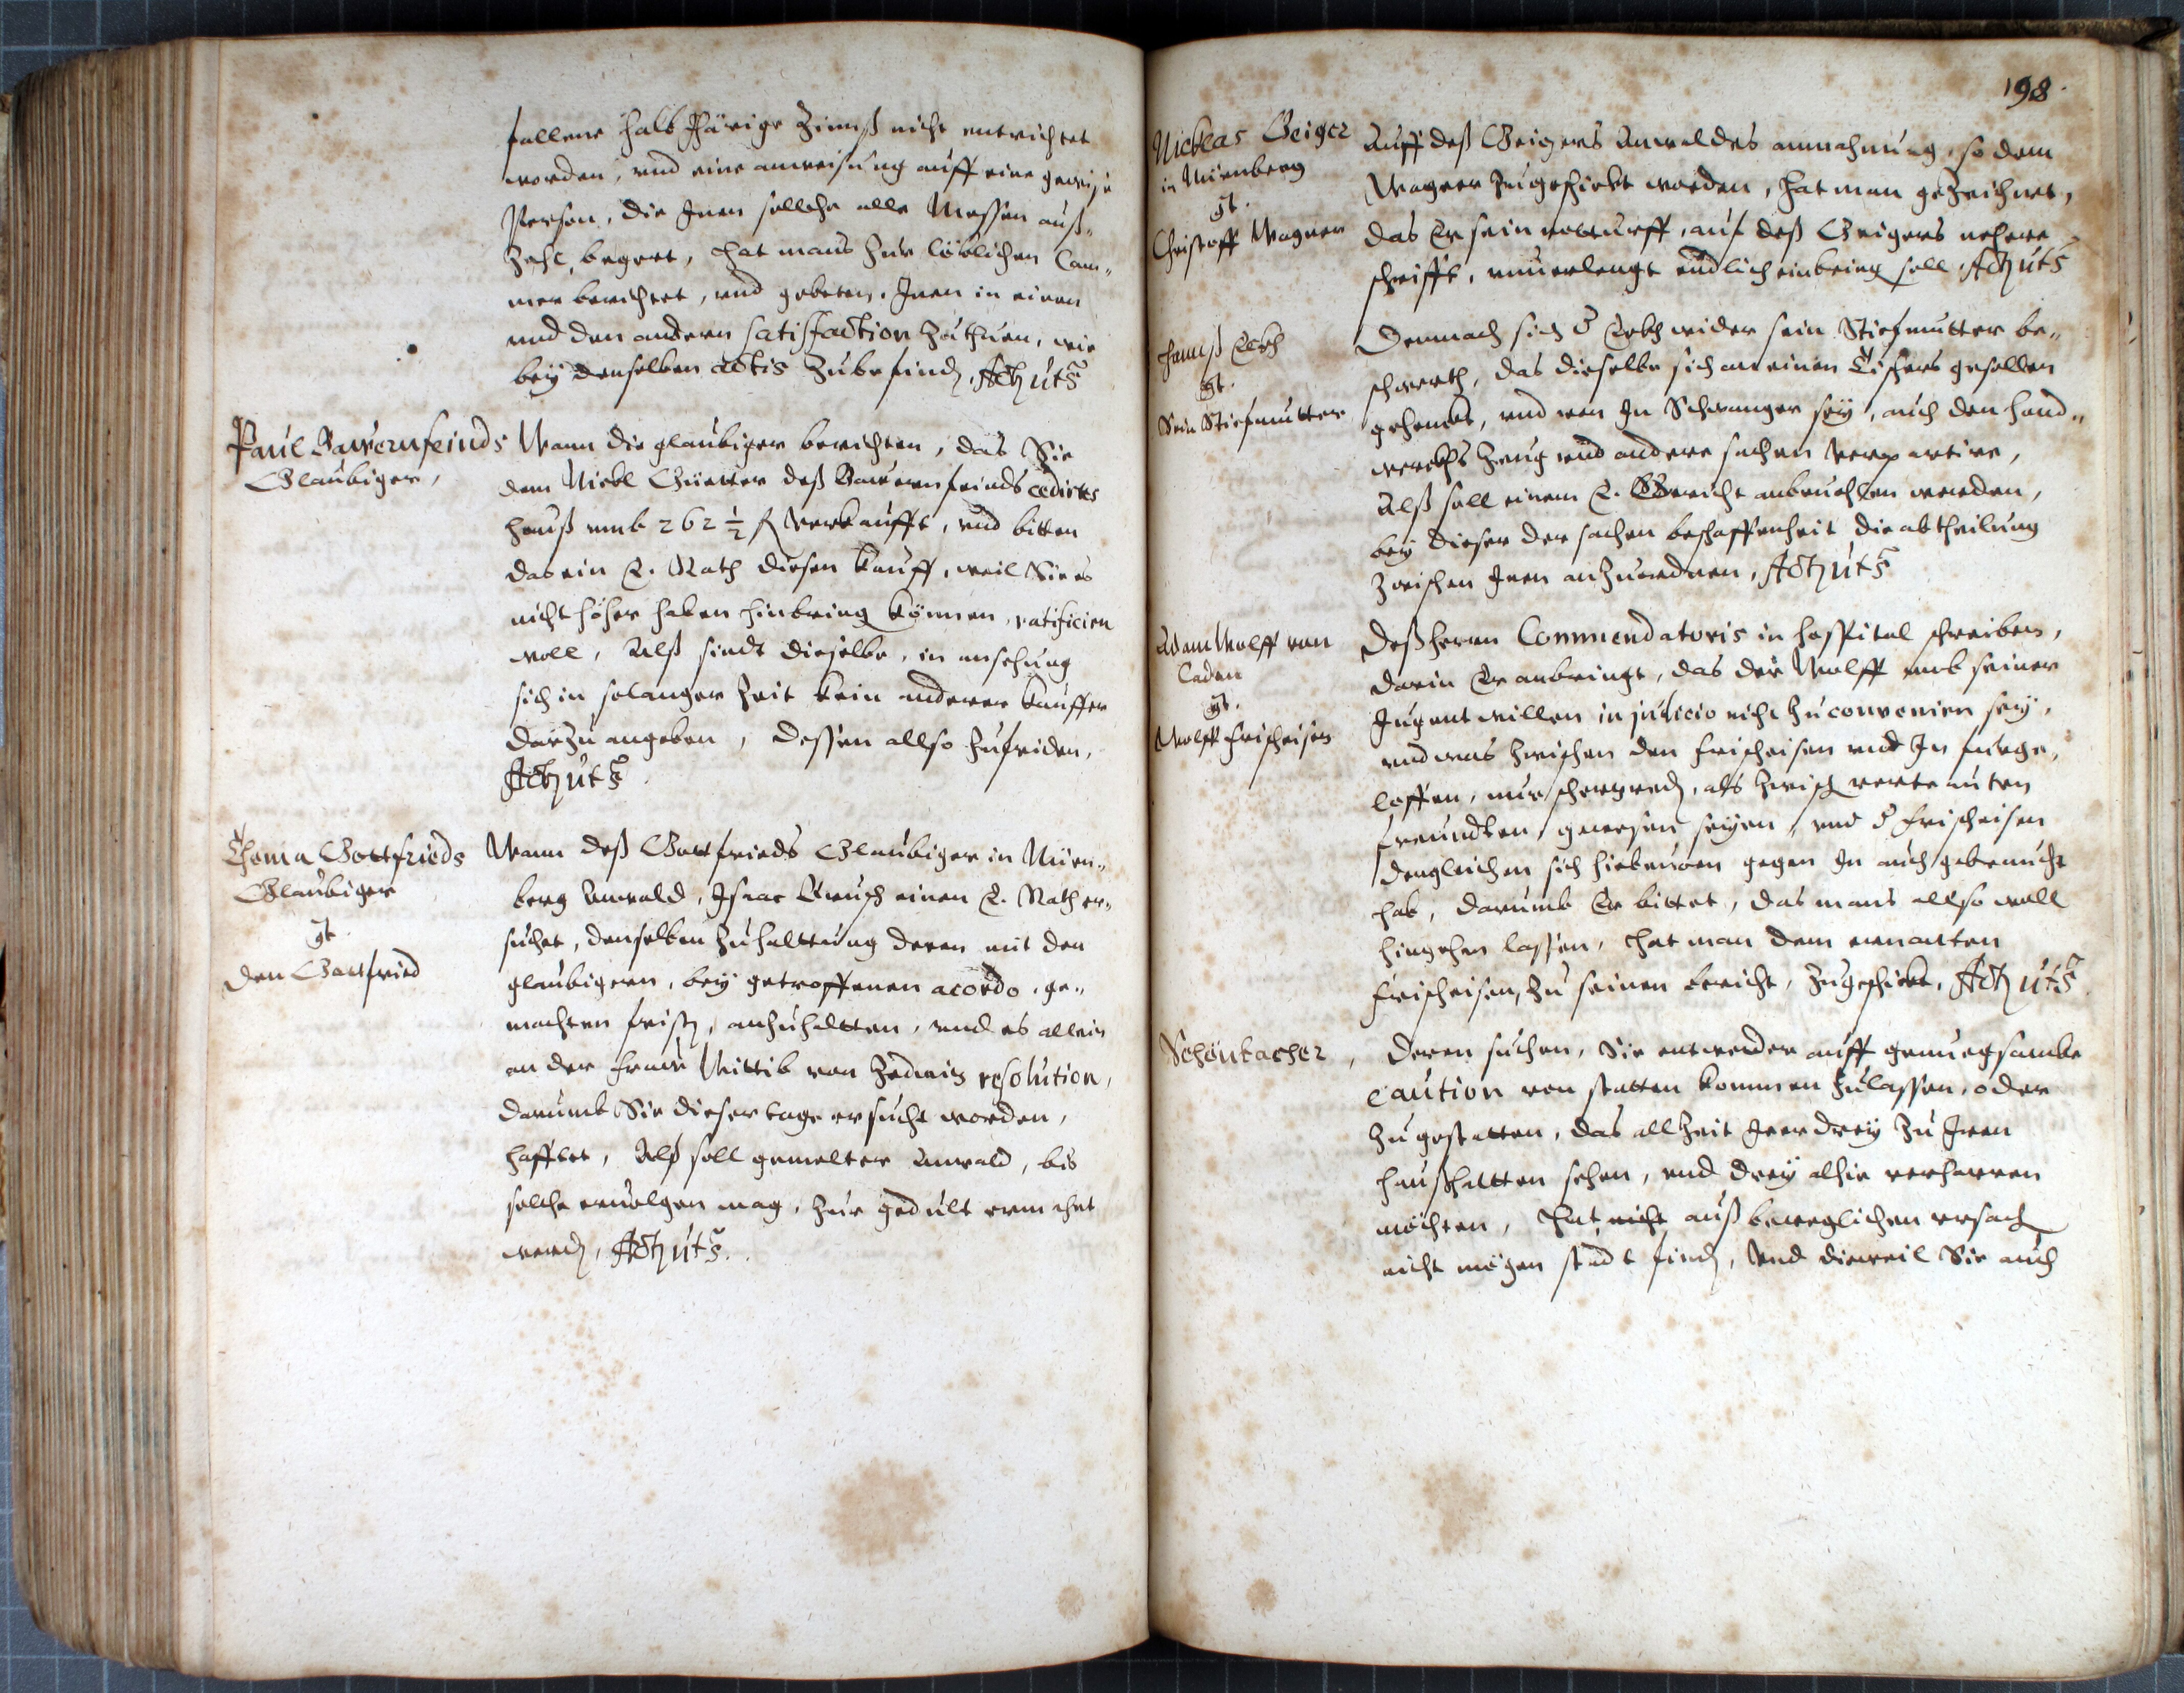 fallene halb Jhärige Zinnß nicht entrichtet
worden, vnd eine anweisung auff eine gewise
Person, die Jnen sollche alle Messen auß„
Zahl, begert, hat mans zur löblichen Cam„
mer berichtet, vnd gebeten, Jnen in einen
vnd den andern satisfaction zuthuen, wie
bey denselben actis zubefinden, Act. ut s.
Paul Bawernfeinds
Glaubiger,
Wann die glaubiger berichten, das Sie
dem Nickl deß Bawernfeinds cedirtes
hauß vmb 262 ½ fl verkaufft, vnd bitten
das ein E. Rath diesen kauff, weil Sie es
nicht höher haben hinbring können, ratificirn
woll, Alß sindt dieselbe, in ansehung
sich in solanger Zeit kein anderer kauffer
darzu angeben, dessen allso zufriden,
Act. ut s.
Thoma Gottfrieds
Glaubiger
gt.
den Gottfried
Wann deß Gottfrieds Glaubiger in Nürn„
berg Anwald, Isaac einen E. Rath er„
sucht, denselben zuhalttung deren mit den
glaubigern, bey getroffenen acordo, ge„
machten frist, anzuhaltten, vnd es allein
an der Fraw Wittib von Zedwitz resolution,
darumb Sie dieser tage ersucht worden,
hafftet, Alß soll gemelter Anwald, bis
solche ervolgen mag, zur gedult ermahnt
werden, Act. ut s.
198.
Nicklas Geiger
in Nürnberg
gt.
Christoff Wagner
Auff deß Geigers Anwaldes anmahnung, so dem
Wagner zugeschickt worden, hat man gezeichnet,
das Er sein notturfft, auf deß Geigers nehere
schrifft, vnuerlengt endlich einbring soll, Act. ut s.
Hannß
gt.
Sein Stiefmutter
Demnach sich d. wider sein Stiefmutter be„
schwerth, das dieselbe sich an einen Tischers gesellen
gehenckt, vnd von Jm Schwanger sey, auch den hand„
werckhs Zeug vnd andere sachen verpartire,
Alß soll einem E. Gericht anbeuohlen werden,
bey dieser der sachen beschaffenheit die abtheilung
zwischen Jnen anzuordnen, Act. ut s.
Adam Wolff von
Caden
gt.
Wolff Frischeisen
Deß herrn Commendatoris in hospital schreiben,
darin Er anbringt, das der Wolff vmb seiner
Jugent willen in judicio nicht zu convenirn sey,
vnd was zwischen den Frischeisen vnd Jm fürge„
loffen, nur schertzreden, als zwisch vertrauten
freundten, gewesen seyen, vnd d. Frischeisen
dergleichen sich hiebeuorn gegen Jm auch gebraucht
hab, darumb Er bittet, das mans allso woll
hingehen lassen, hat man dem ernanten
Frischeisen, zu seinen bericht, zugeschickt, Act. ut s.
Schönbacher,
Deren suchen, Sie entweder auff genuegsambe
caution von statten kommen zulassen, oder
zugestatten, das allzeit Jrer drey zu Jren
haußhaltten sehen, vnd drey alhie verharren
möchten, hat nicht auß beweglichen vrsach
nicht mögen stadt finden, Vnd dieweil Sie auch